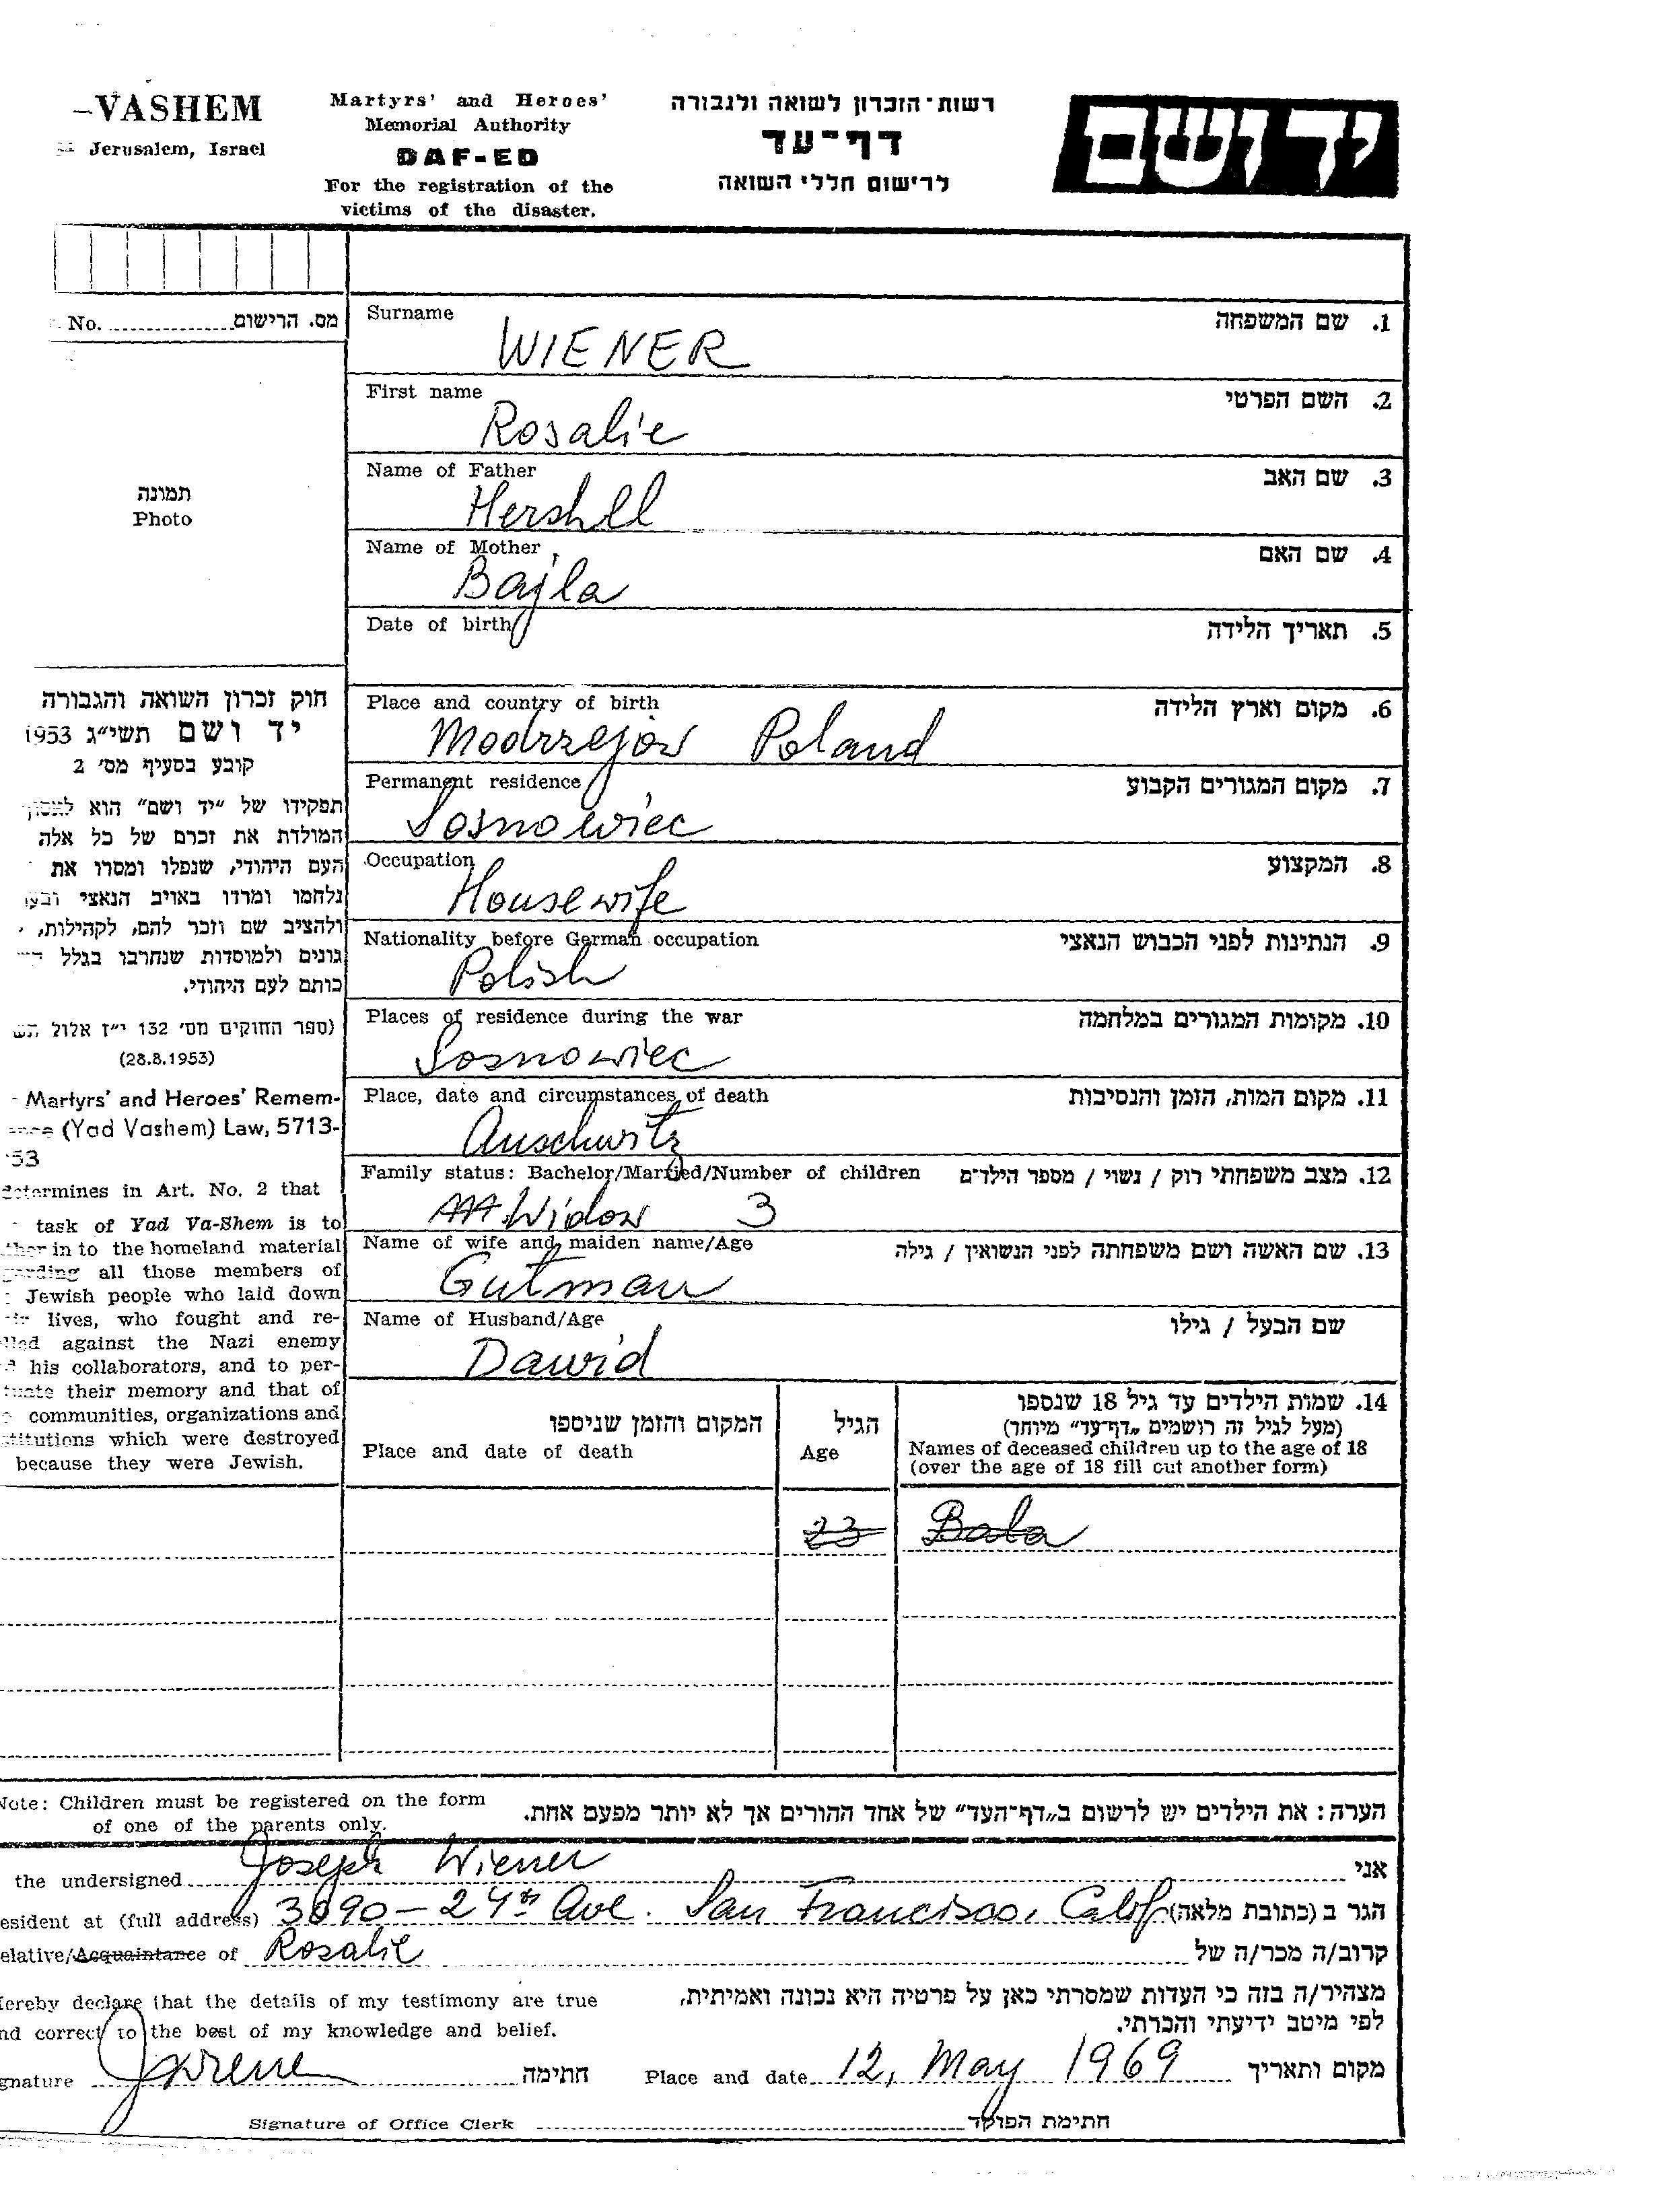 –VASHEM
Jerusalem, Israel
Martyrs' and Heroes'
Memorial Authority
DAF-ED
For the registration of the
victims of the disaster.
רשות־הזכרון לשואה ולגבורה
דף־עד
לרישום חללי השואה
יד ושם
No. ............... מס. הרישום
תמונה
Photo
Surname
1. שם המשפחה
WIENER
First name
2. השם הפרטי
Rosalie
Name of Father
3. שם האב
Hershll
Name of Mother
4. שם האם
Bajla
Date of birth
5. תאריך הלידה
Place and country of birth
6. מקום וארץ הלידה
Modrzejów Poland
Permanent residence
7. מקום המגורים הקבוע
Sosnowiec
Occupation
8. המקצוע
Housewife
Nationality before German occupation
9. הנתינות לפני הכבוש הנאצי
Polish
Places of residence during the war
10. מקומות המגורים במלחמה
Sosnowiec
Place, date and circumstances of death
11. מקום המות, הזמן והנסיבות
Auschwitz
Family status: Bachelor/Married/Number of children
12. מצב משפחתי רוק / נשוי / מספר הילדים
Widow 3
Name of wife and maiden name/Age
13. שם האשה ושם משפחתה לפני הנשואין / גילה
Gutman
Name of Husband/Age
שם הבעל / גילו
Dawid
חוק זכרון השואה והגבורה
יד ושם תשי״ג 1953
קובע בסעיף מס׳ 2
תפקידו של ״יד ושם״ הוא
המולדת את זכרם של כל אלה
העם היהודי, שנפלו ומסרו את
נלחמו ומרדו באויב הנאצי
ולהציב שם וזכר להם, לקהילות,
גונים ולמוסדות שנחרבו בגלל
כותם לעם היהודי.
(ספר החוקים מס׳ 132 י״ז אלול
(28.8.1953)
Martyrs' and Heroes' Remem-
(Yad Vashem) Law, 5713-
53
determines in Art. No. 2 that
task of Yad Va-Shem is to
in to the homeland material
all those members of
Jewish people who laid down
lives, who fought and re-
against the Nazi enemy
his collaborators, and to per-
their memory and that of
communities, organizations and
which were destroyed
because they were Jewish.
המקום והזמן שניספו
Place and date of death
הגיל
Age
14. שמות הילדים עד גיל 18 שנספו
(מעל לגיל זה רושמים ״דף־עד״ מיוחד)
Names of deceased children up to the age of 18
(over the age of 18 fill out another form)
23 Bala
Note: Children must be registered on the form
of one of the parents only.
הערה: את הילדים יש לרשום ב״דף־העד״ של אחד ההורים אך לא יותר מפעם אחת.
the undersigned Joseph Wiener אני
esident at (full address) 3090 – 24th Ave. San Francisco, Calif. הגר ב (כתובת מלאה)
elative/Acquaintance of Rosalie קרוב/ה מכר/ה של
ereby declare that the details of my testimony are true
nd correct to the best of my knowledge and belief.
מצהיר/ה בזה כי העדות שמסרתי כאן על פרטיה היא נכונה ואמיתית,
לפי מיטב ידיעתי והכרתי.
gnature JWiener חתימה Place and date 12, May 1969 מקום ותאריך
Signature of Office Clerk חתימת הפוקד